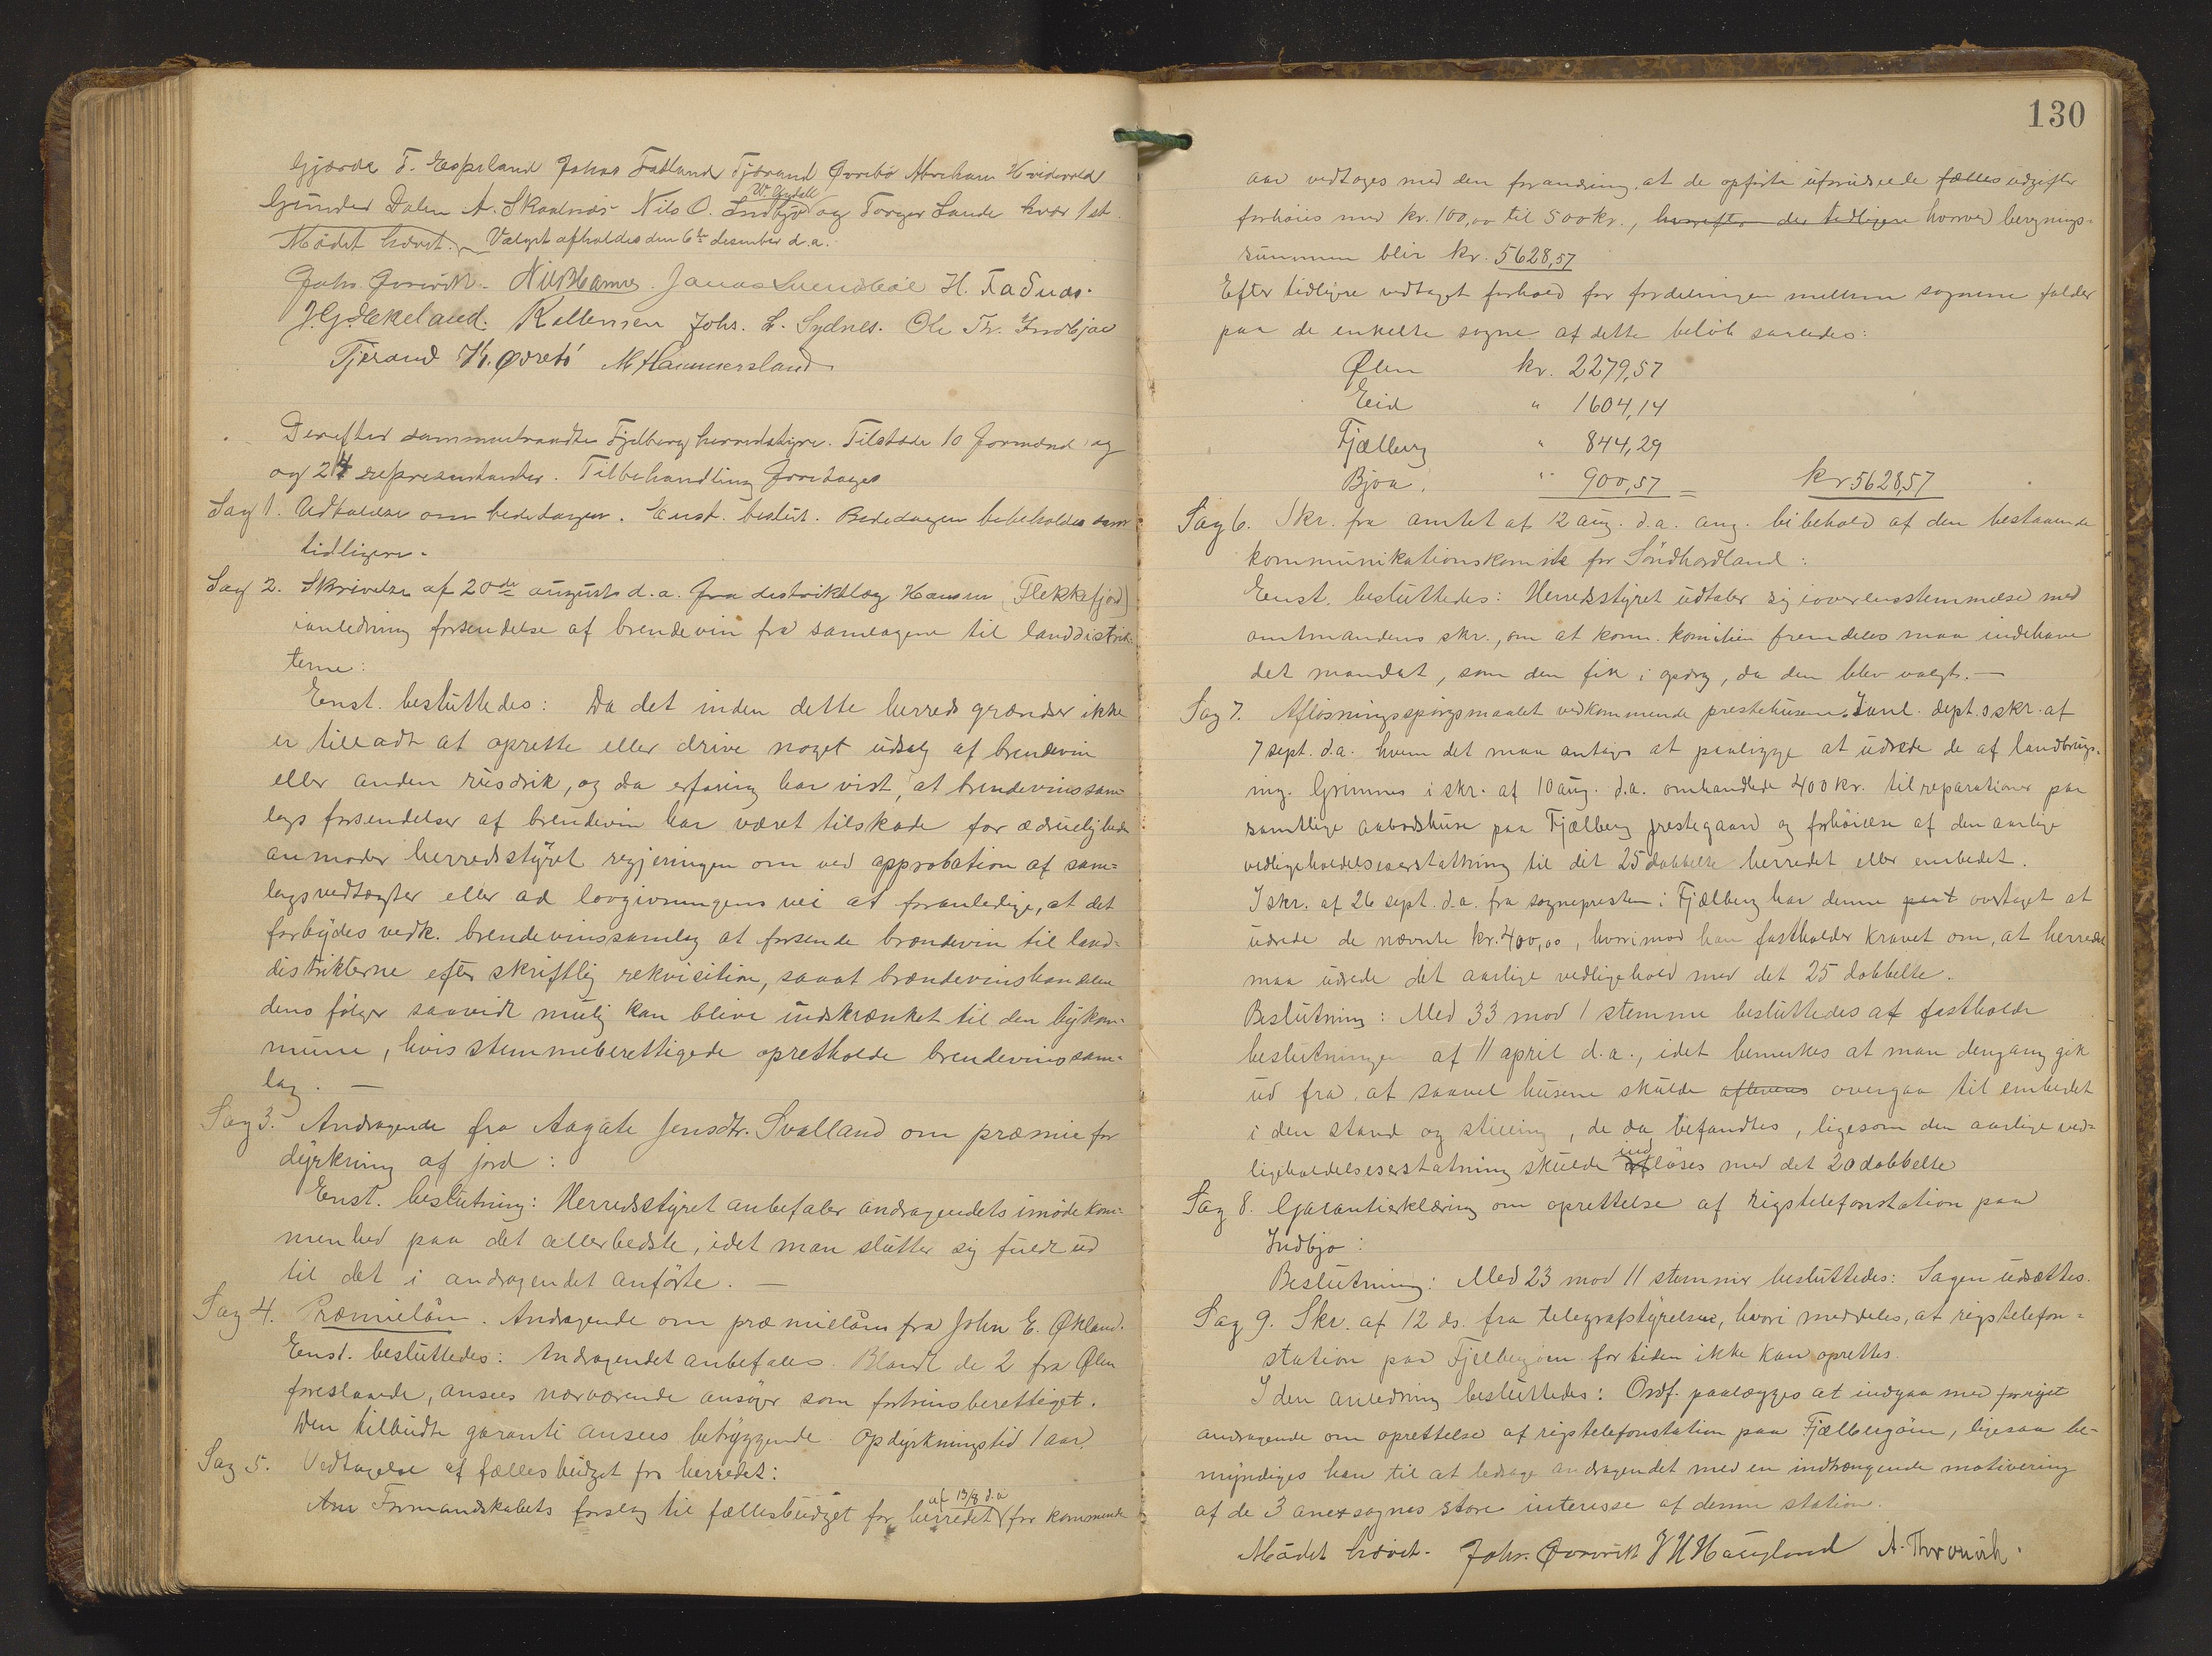 Gjærde T. Espeland Johas Fatland Tjærand Øvrebö Abraham Hvidevold
Gunder Dalen A. Skaalnæs Nils O. Indbjo og Torger Lande hver 1 st.
Mödet hævet. Valget afholdes den 6te desember d.a.
Johs. Øvrevik. Jonas Svendböe H. Fadnæs.
J. G. Ekeland. Johs. L. Sydnes. Ole Th. Indbjoe
Tjerand K. Øvrebö M Hammersland
Derefter sammentraadte Fjelberg herredsstyre. Tilstede 10 formænd og
og 24 repræsentanter. Til behandling foretages
Sag 1. Udtalelse om bededagen. Enst. beslut. Bededagen bibeholdes som
tidligere.
Sag 2. Skrivelse af 20de augusts d.a. fra distriktslæg Hansen (Flekkefjord)
ianledning forsendelse af brendevin fra samlagene til landdistrik-
terne:
Enst. besluttedes: Da det inden dette herreds grændser ikke
er tilladt at oprette eller drive noget udsalg af brendevin
eller anden rusdrik, og da erfaring har vist, at brendevinssam-
lags forsendelser af brendevin har været tilskade for ædrueligheden
anmoder herredsstyret regjeringen om ved approbation af sam-
lagsvedtægter eller ad lovgivningens vei at foranledige, at det
forbydes vedk. brendevinssamlag at forsende brændevin til land-
distrikterne efter skriftlig rekvisition, saaat brændevinshandelen
dens følger saavidt mulig kan blive indskrænket til den bykom-
mune, hvis stemmeberettigede opretholde brendevinssam-
lag. —
Sag 3. Andragende fra Aagate Jensdtr. Svalland om præmie for
dyrkning af jord:
Enst. beslutning: Herredsstyret anbefaler andragendets imødekom-
menhed paa det allerbedste, idet man slutter sig fuldt ud
til det i andragendet anförte. —
Sag 4. Præmielån. Andragende om præmielåns fra John E. Økland.
Enst. besluttedes: Andragendet anbefales. Blandt de 2 fra Ølen
foreslaaede, ansees nærværende ansöger som fortrinsberettiget.
Den tilbudte garanti ansees betryggende. Opdyrkningstid 1 aar.
Sag 5. Vedtagelse af fællesbudget for herredet:
af 13/8 d.a
Formandskabets forslag til fællesbudget for herredet for kommende
130
aar vedtoges med den forandring, at de opförte uforudseede fælles udgifter
forhöies med kr. 100,00 til 500 kr., hvorefter der tidligere hvorved beregnings-
summen blir kr. 5628,57
Efter tidligere vedtaget forhold for fordelingen mellem sognene falder
paa de enkelte sogne af dette belöb saaledes:
Ølen kr. 2279,57
Eid " 1604,14
Fjælberg " 844,29
Bjoa. " 900,57 = kr 5628,57
Sag 6. Skr. fra amtet af 12 aug. d.a. ang. bibehold af den bestaaende
kommunikationskomite for Söndhordland:
Enst. besluttedes: Herredsstyret udtaler sig ioverensstemmelse med
amtmandens skr., om at kom. komiteen fremdeles maa indehave
det mandat, som den fik i opdrag, da den blev valgt. —
Sag 7. Aflösningsspörgsmaalet vedkommende prestehusene. Ianl. dept.s skr. af
7 sept. d.a. hvem det maa antages at paaligge at udrede de af landbrugs-
ing. Grimnes i skr. af 10 aug. d.a. omhandlede 400 kr. til reparationer paa
samtlige aabodshuse paa Fjælberg prestegaard og forhöielse af den aarlige
vedligeholdelseserstatning til det 25 dobbelte herredet eller embedet.
I skr. af 26 sept. d.a. fra sognepresten i Fjælberg har denne paat overtaget at
udrede de nævnte kr. 400,00, hvorimod han fastholder kravet om, at herredet
maa udrede det aarlige vedligehold med det 25 dobbelte.
Beslutning: Med 33 mod 1 stemme besluttedes at fastholde
beslutningen af 11 april d.a., idet bemerkes at man dengang gik
ud fra, at saavel husene skulde afleveres overgaa til embedet
i den stand og stilling, de da befandtes, ligesom den aarlige ved-
ligeholdelseserstatning skulde indlöses med det 20 dobbelte
Sag 8. Garantierklæring om oprettelse af rigstelefonstation paa
Indbjo:
Beslutning: Med 23 mod 11 stemmer besluttedes: Sagen udsættes.
Sag 9. Skr. af 12 ds. fra telegrafstyrelsen, hvori meddeles, at rigstelefon-
station paa Fjelbergöen for tiden ikke kan oprettes.
I den anledning besluttedes: Ordf. paalægges at indgaa med fornyet
andragende om oprettelse af rigstelefonstation paa Fjælbergöen, ligesaa be-
myndiges han til at ledsage andragendet med en indtrængende motivering
af de 3 anexsognes store interesse af denne station.
Mödet hævet. Johs. Øvrevik J H Haugland A. Thorvik.